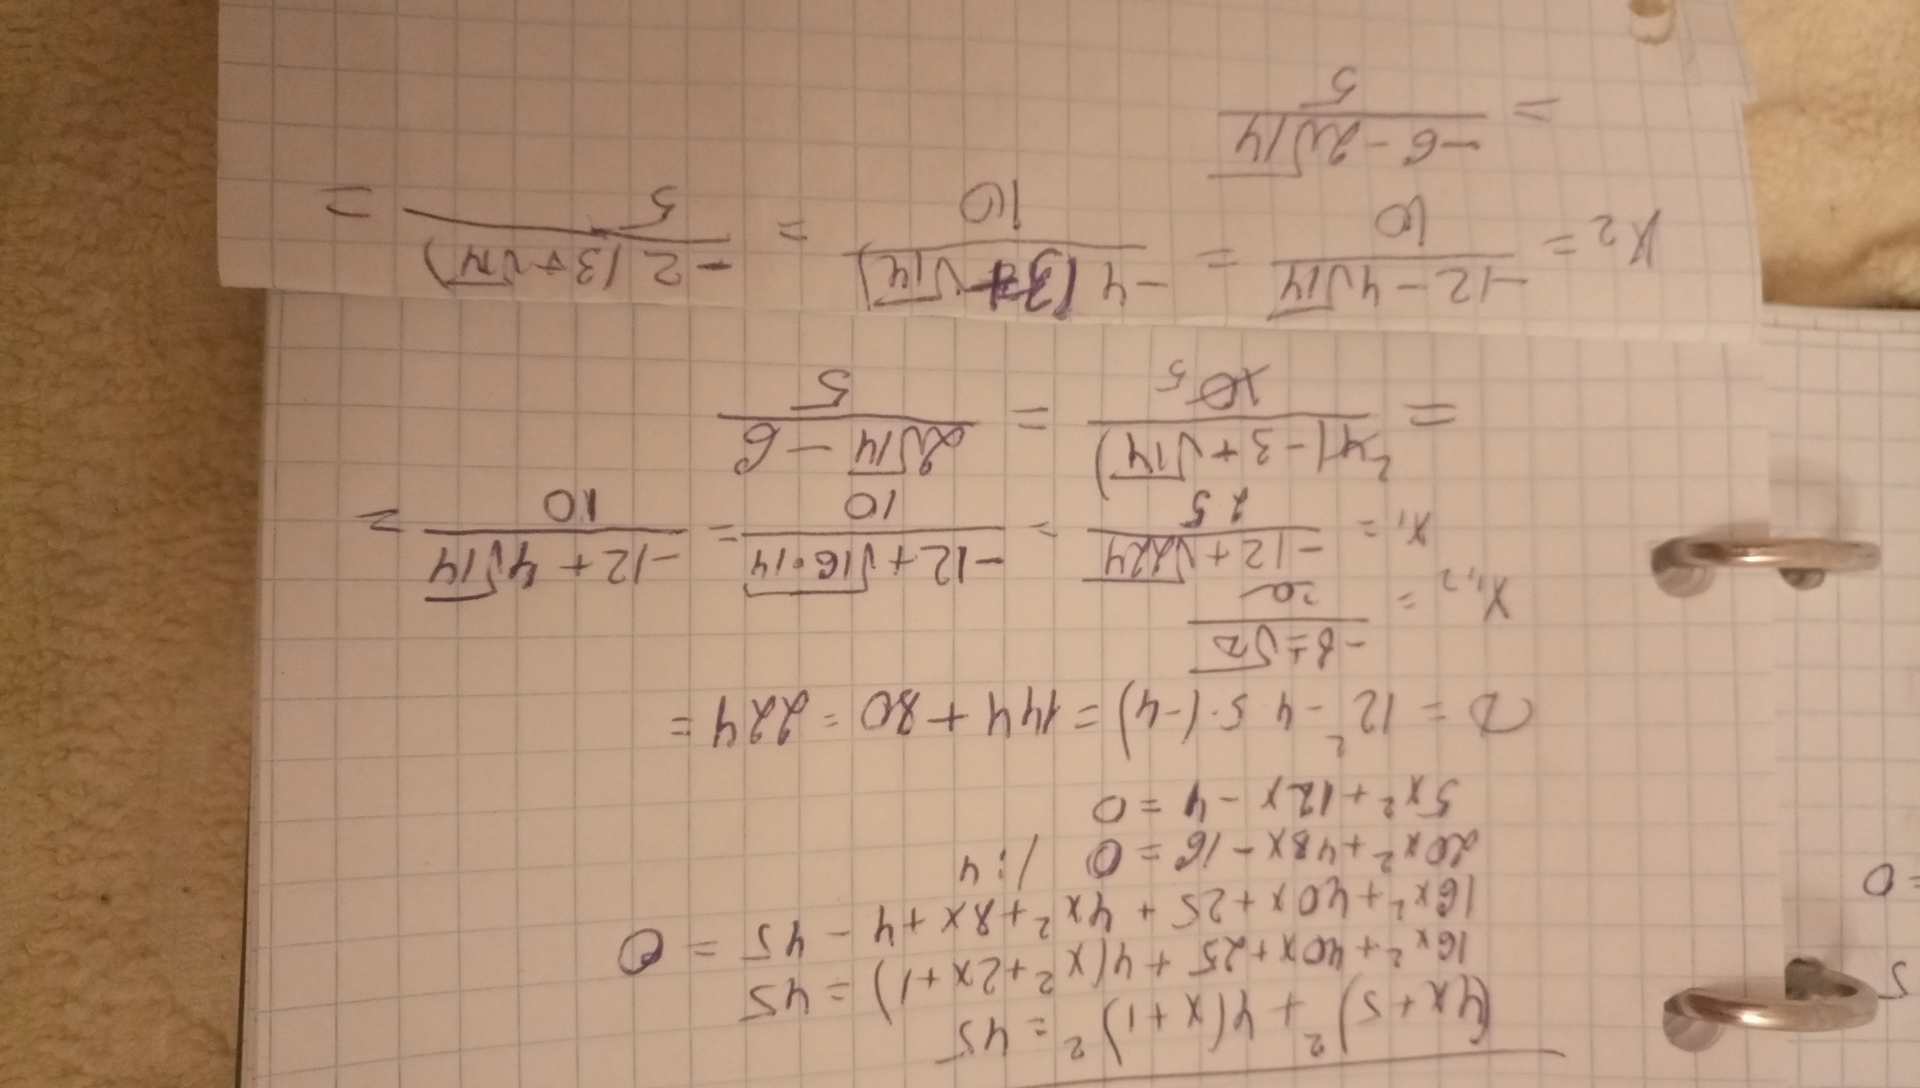 (4x+5)² + 4(x+1)² = 45
16x² + 40x + 25 + 4(x² + 2x + 1) = 45
16x² + 40x + 25 + 4x² + 8x + 4 - 45 = 0
20x² + 48x - 16 = 0 / :4
5x² + 12x - 4 = 0
D = 12² - 4·5·(-4) = 144 + 80 = 224 =
x₁,₂ = (-b ± √D) / 2a
x₁ = (-12 + √224) / 2·5 = (-12 + √16·14) / 10 = (-12 + 4√14) / 10 =
= 4(-3 + √14) / 10 = (2√14 - 6) / 5
2 5
x₂ = (-12 - 4√14) / 10 = -4(3+√14) / 10 = -2(3+√14) / 5 =
= (-6 - 2√14) / 5
= 0
5